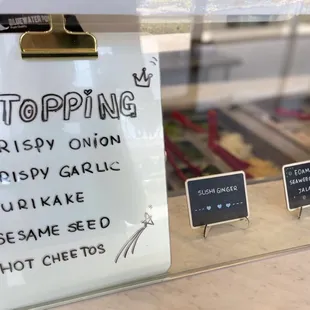 BLUEWATER
TOPPING
RISPY ONION
RISPY GARLIC
URIKAKE
SESAME SEED
HOT CHEETOS
SUSHI GINGER
EDAM
SEAWEED
JALA